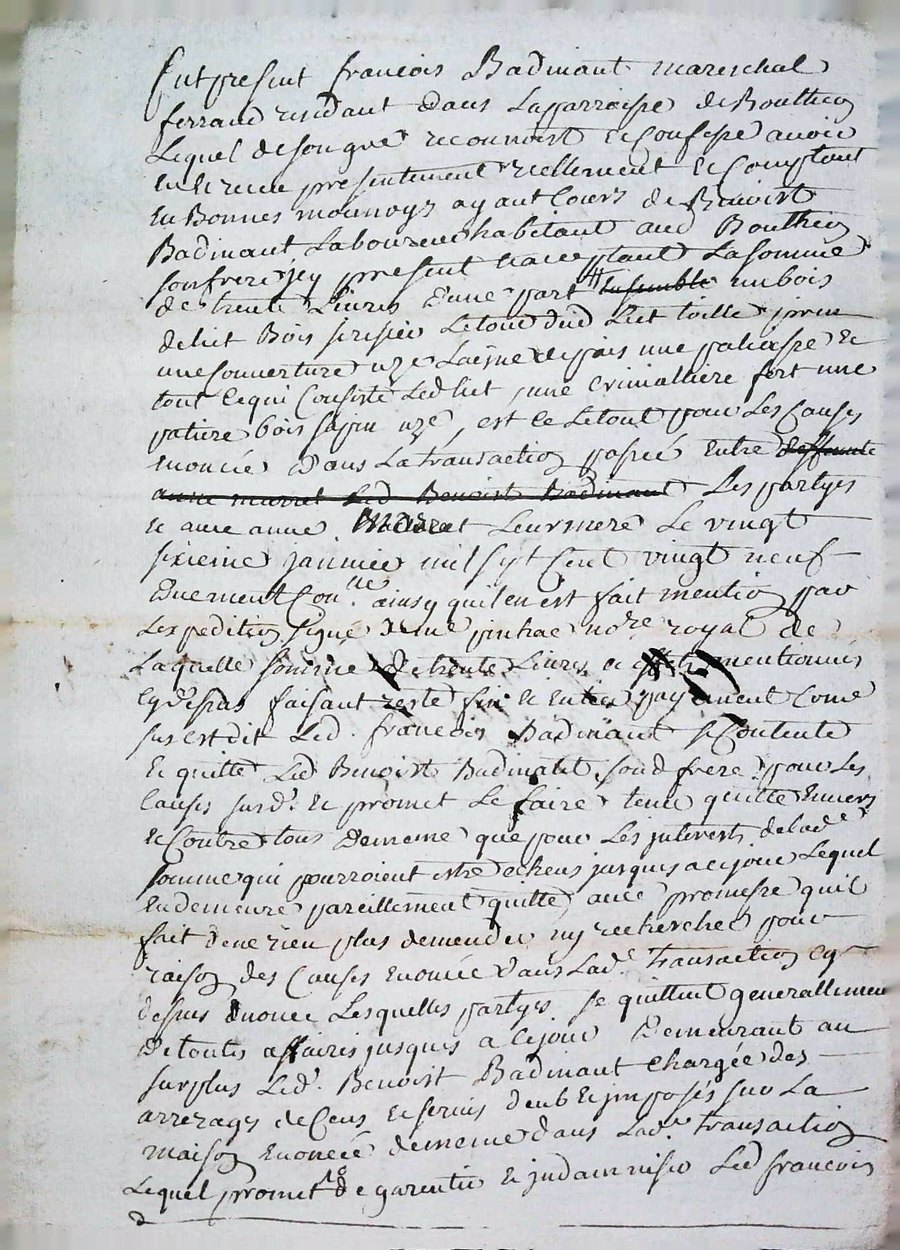 fut present francois Badinant mareschal
ferrand residant dans La parroisse de Bouthéon
Lequel de son gré reconnoist et confesse avoir
eu et receu presentement reellement et comptant
en Bonnes monnoys ayant cours de Benoist
Badinant Laboureur habitant aud Bouthéon
son frere jcy present et acceptant La somme
de trente Livres d'une part ensemble un bois
de lict Bois Letour dud Lict toille
une couverture uzé Laisne une paliasse et
tout ce qui consiste Led lict , une cremalliere fort une
patiere bois sapin uzé , est ce Le tout pour Les causes
enoncée dans La transaction passée entre deffunte
anne murret Led Benoist Badinant Les partyes
et avec anne Leur mere Le vingt
sixieme janvier mil sept cent vingt neuf
duement con.lle ainsy quil en est fait mention par
Lexpedition signé de me nore royal de
Laquelle somme de trente Livres et mentionnés
cy despas faisant reste fin et entier payement come
sus est dit Led . francois Badinant se contente
et quitte Led Benoist Badinant sond frere pour Les
causes susd. et promet Le faire tenir quitte envers
et contre tous de meme que pour Les jnterests de lade
somme qui pourroient estre echeus jusques a ce jour Lequel
en demeure pareillement quitte avec promesse quil
fait de ne rien plus demender ny rechercher pour
raison des causes enoncée dans Lade transaction cy
desus enoncé Lesquelles partyes se quittent generallement
de toutes affaires jusques a ce jour Demeurant au
surplus Led. Benoist Badinant chargée des
arrerages de cens et servis deub et jmposés sur La
maison enoncée de meme dans Lade transaction
Lequel promet de garentir et jndamniser Led francois